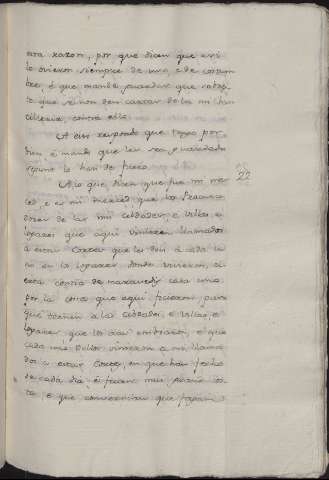 esta razon, por que dicen que asi
lo ovieron siempre de uso, e de costum
bre, e que mande guardar que
que si non den cartas de la mi chan
cilleria, contra ello.
A esto respondo que tengo por
bien, e mando que les sea guardado
segun lo han de fuero.
A lo que dicen que fue mi mer
ced, e es mi merced, que los Procura
dores de las mis cibdades, e villas, e
logares que aqui vinieron llamados
a estas Cortes que les den a cada u
no en los logares donde vinieron,
cierta contia de maravedis cada uno
por la costa que aqui ficieron, para
que tornen a las cibdades, e villas, e
logares que los acá embiaron, e que
cada uno dellos vinieron a mi llama
do a estas Cortes, en que han fecho
de cada dia, e facen muy
ta, e que convernia que fagan
22